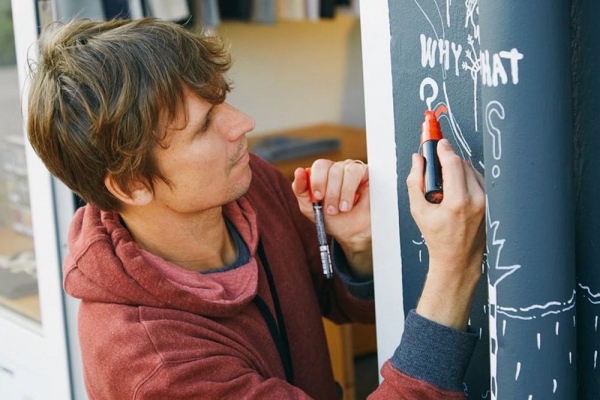 WHY WHAT
? ?